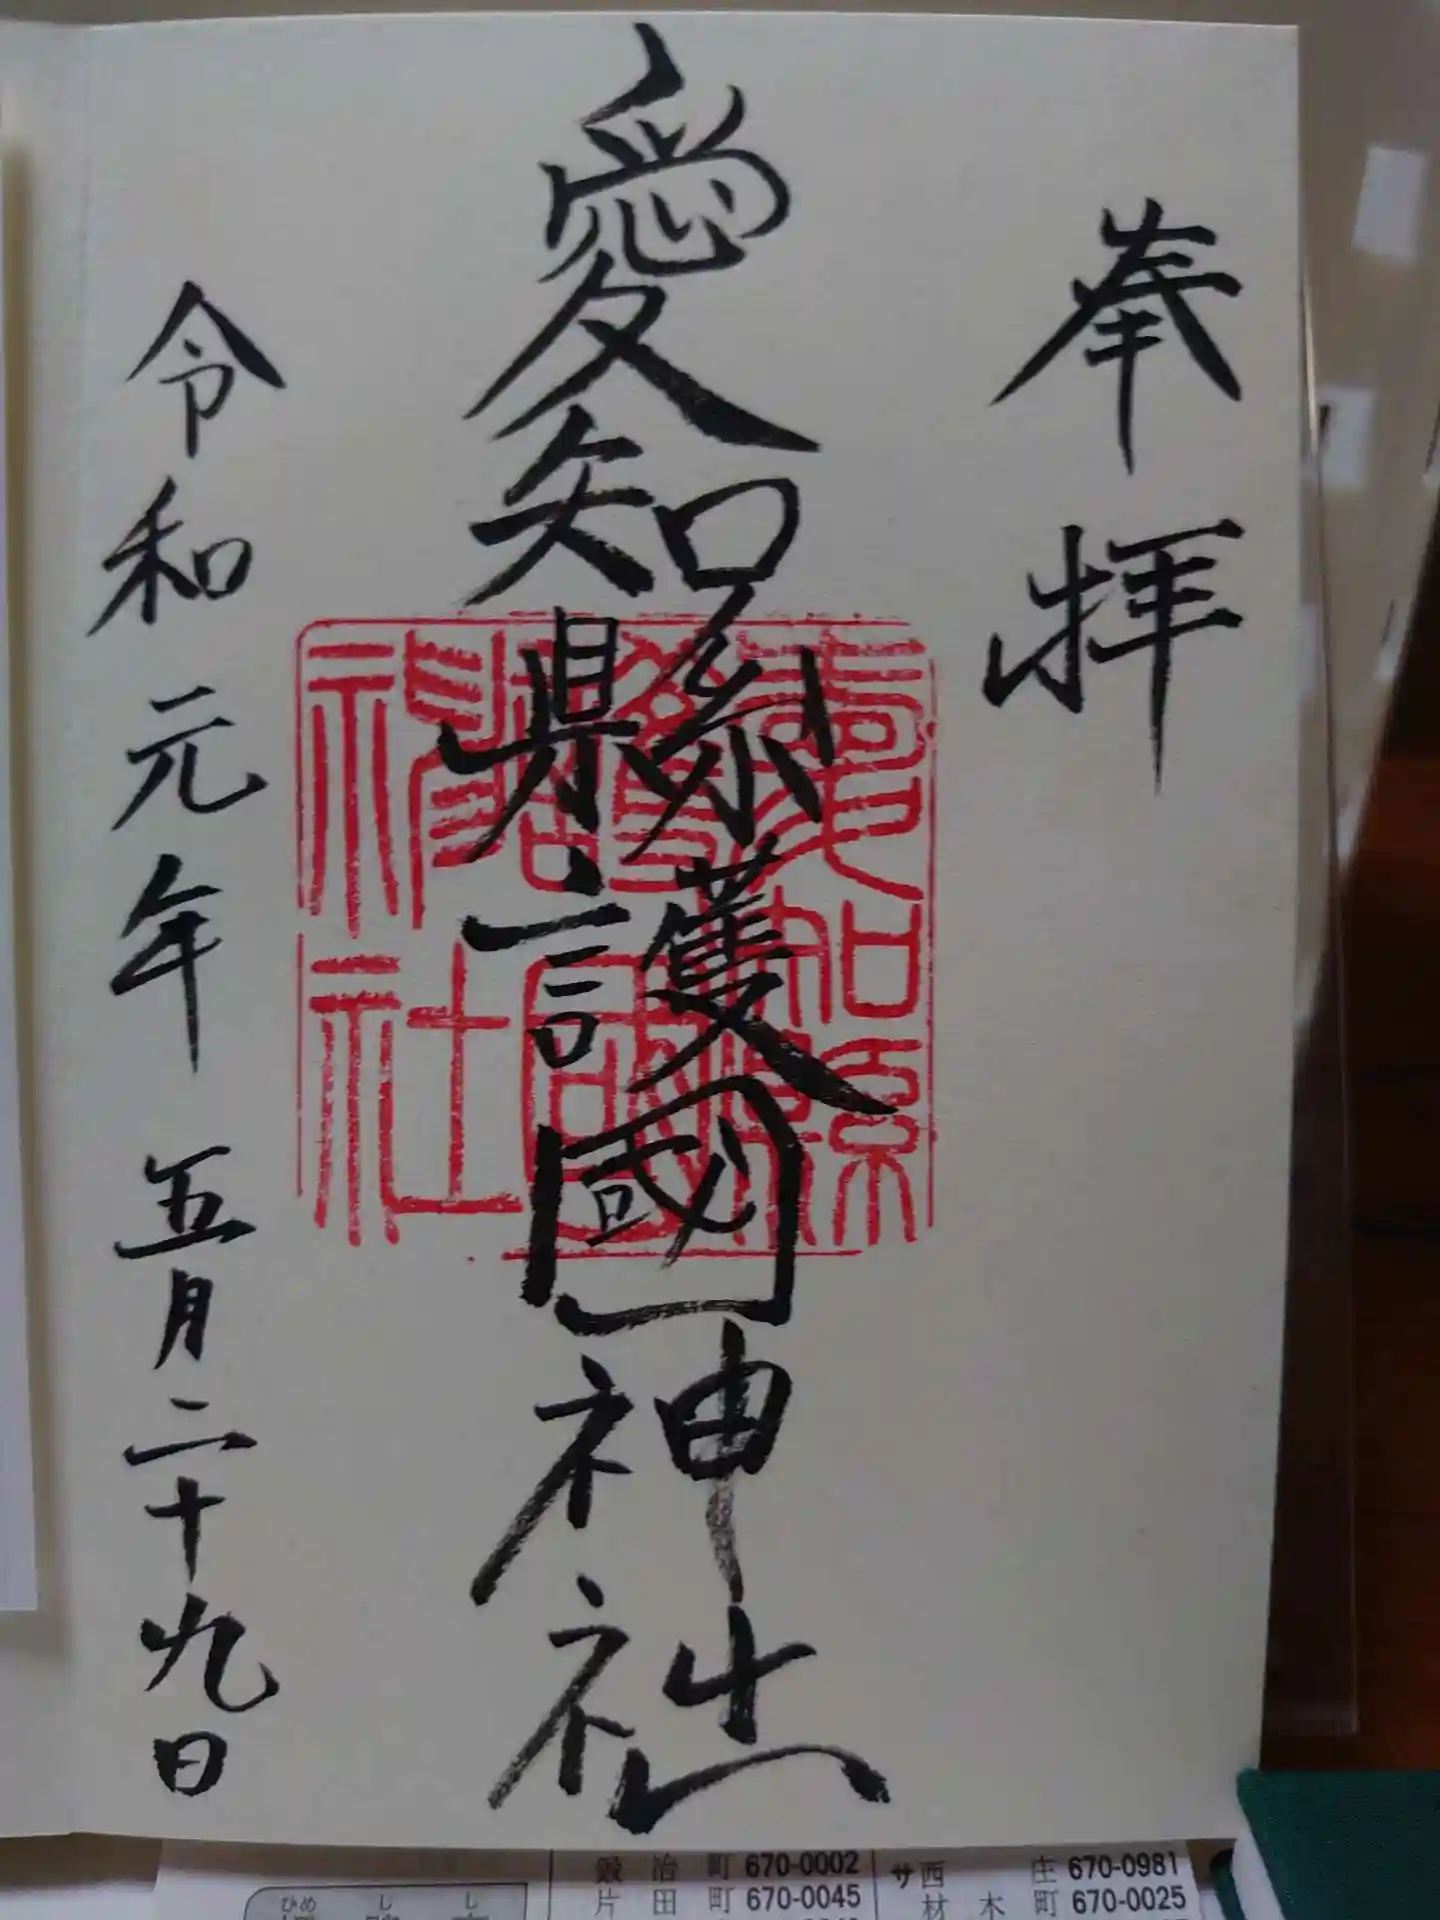 奉拝
愛知縣護國神社
愛知縣
護國
神社
令和元年五月二十九日
鍛冶町 670-0002
片田町 670-0045
サ西庄 670-0981
材木町 670-0025
ひめ じ し